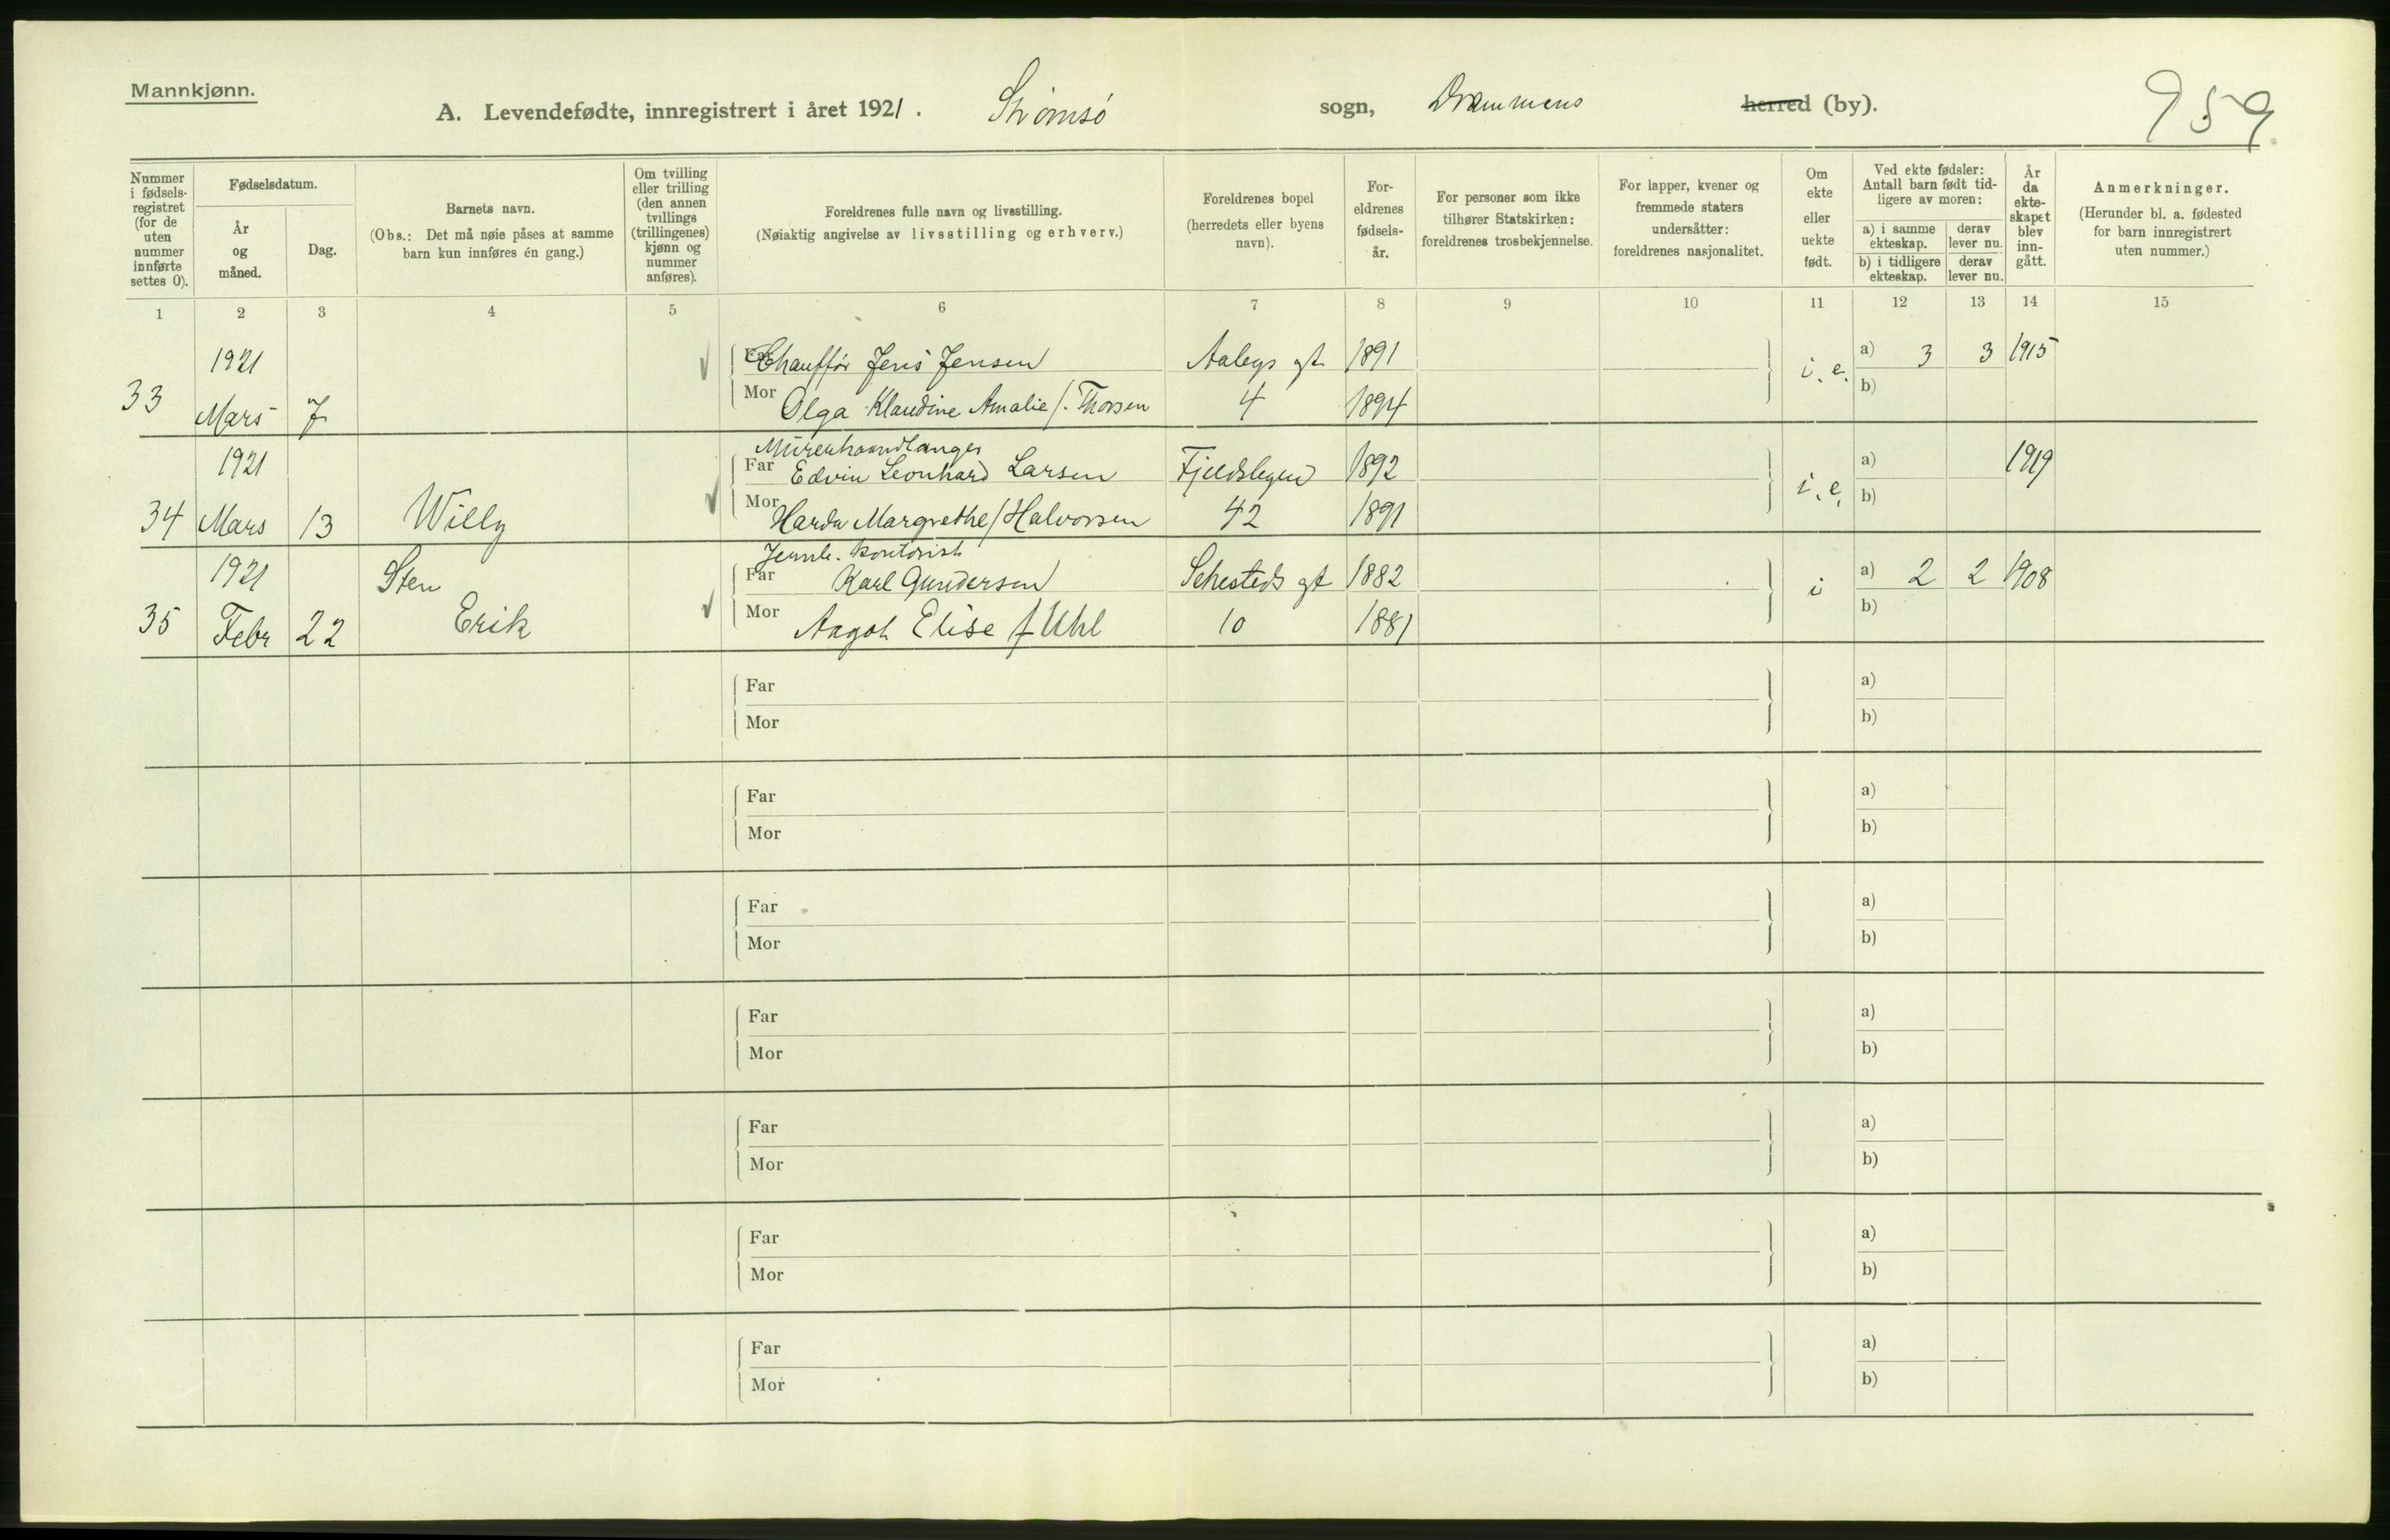 Mannkjønn.
A. Levendefødte, innregistrert i året 1921. Strømsø sogn, Drammens herred (by). 959
Nummer i fødsels-registret (for de uten nummer innførte settes 0).
Fødselsdatum.
År og måned.
Dag.
Barnets navn.
(Obs.: Det må nøie påses at samme barn kun innføres én gang.)
Om tvilling eller trilling (den annen tvillings (trillingenes) kjønn og nummer anføres).
Foreldrenes fulle navn og livsstilling.
(Nøiaktig angivelse av livsstilling og erhverv.)
Foreldrenes bopel (herredets eller byens navn).
For-eldrenes fødsels-år.
For personer som ikke tilhører Statskirken: foreldrenes trosbekjennelse.
For lapper, kvener og fremmede staters undersåtter: foreldrenes nasjonalitet.
Om ekte eller uekte født.
Ved ekte fødsler: Antall barn født tid-ligere av moren:
a) i samme ekteskap. derav lever nu.
b) i tidligere ekteskap. derav lever nu.
År da ekte-skapet blev inn-gått.
Anmerkninger.
(Herunder bl. a. fødested for barn innregistrert uten nummer.)
1 2 3 4 5 6 7 8 9 10 11 12 13 14 15
1921 Far Chauffør Jens Jensen 1891 i. e. a) 3 3 1915
33 Mars 7 Mor Olga Klaudine Amalie f. Thorsen 4 1894 b)
Murerhaandlanger
1921 Far Edvin Leonhard Larsen 1892 i. e. a) 1919
34 Mars 13 Willy Mor Margrethe f Halvorsen 42 1891 b)
Jernb. kontorist
1921 Sten Far Karl Gundersen Sehesteds gt 1882 i a) 2 2 1908
35 Febr 22 Erik Mor Aagot Elise f Uhl 10 1881 b)
Far a)
Mor b)
Far a)
Mor b)
Far a)
Mor b)
Far a)
Mor b)
Far a)
Mor b)
Far a)
Mor b)
Far a)
Mor b)